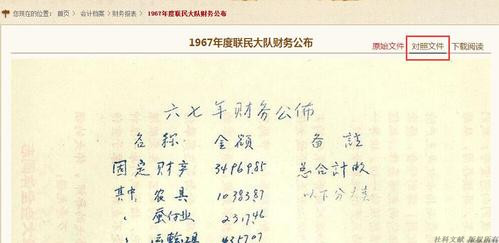 您现在的位置： 首页 〉 会计档案 〉 财务报表 〉 1967年度联民大队财务公布
1967年度联民大队财务公布
原始文件 对照文件 下载阅读
六七年财务公佈
名称 金额 备註
固定财产 34969.85 总合計收
其中 农具 1038387 以下分类
〃 蚕付业 231746
〃 运输工具 435707
社科文献 版权所有